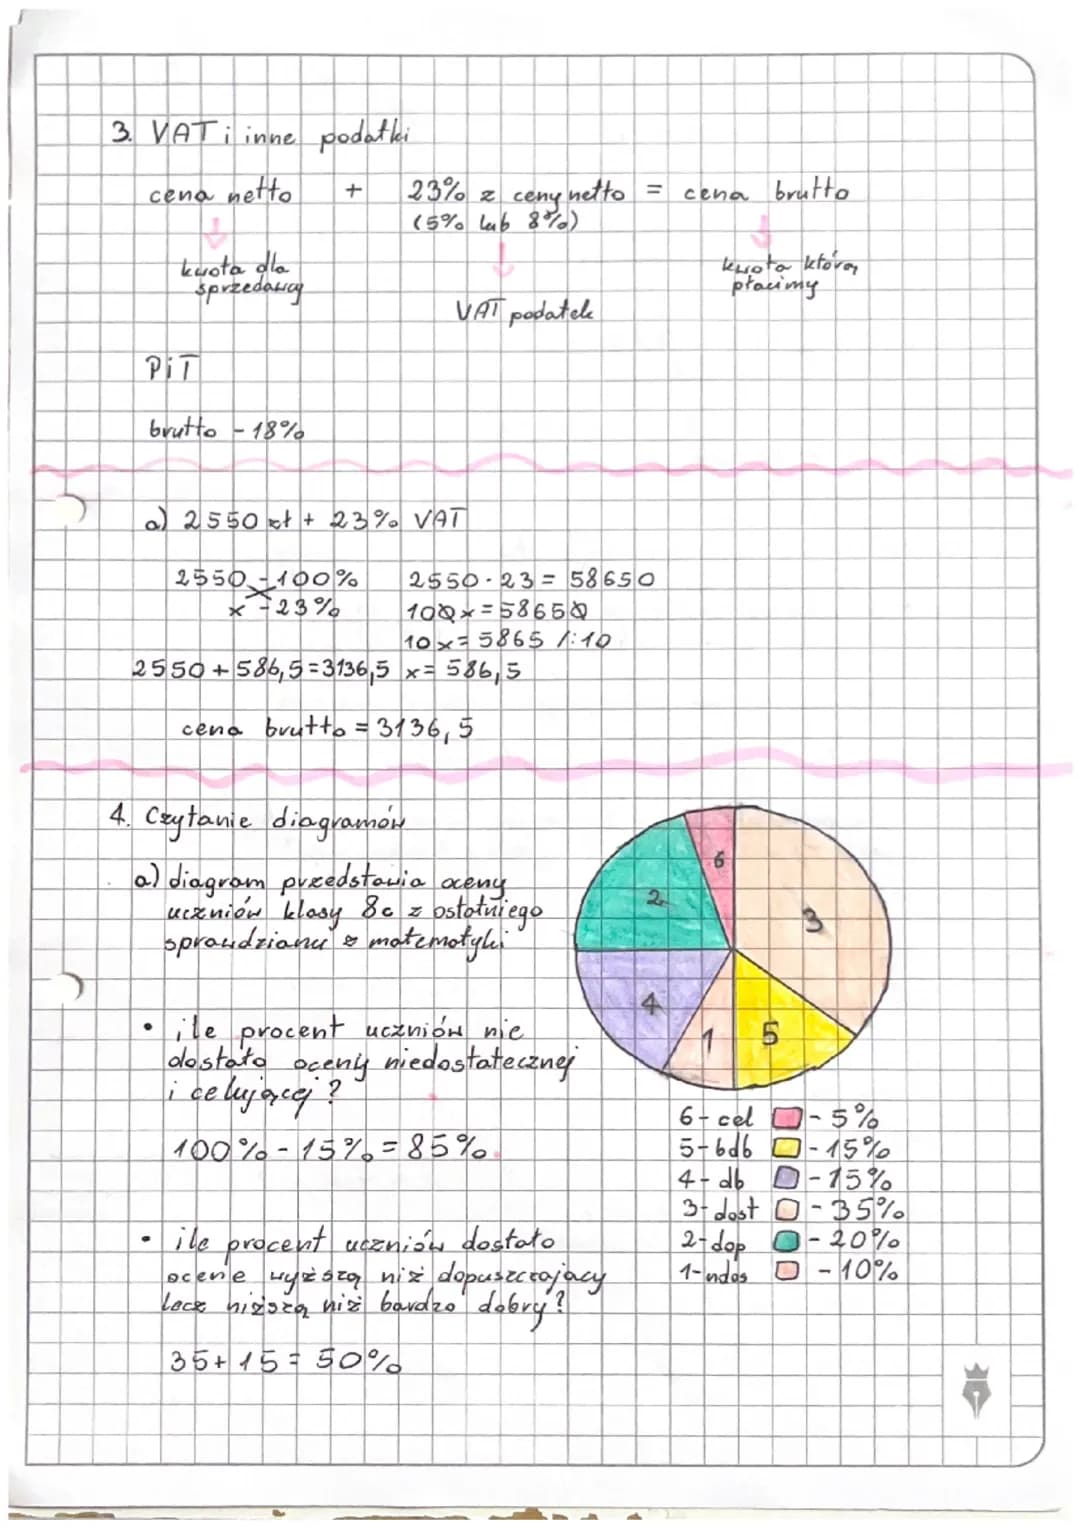 3. VAT i inne podatki
cena netto + 23% z ceny netto = cena brutto
(5% lub 8%)
kwota dla
sprzedawcy
kwota którą
płacimy
VAT podatek
PiT
brutto - 18%
a) 2550 zł + 23% VAT
2550 - 100%
x - 23%
2550 · 23 = 58650
100x = 58650
10x = 5865 /:10
2550 + 586,5 = 3136,5 x = 586,5
cena brutto = 3136,5
4. Czytanie diagramów
a) diagram przedstawia oceny
uczniów klasy 8c z ostatniego
sprawdzianu z matematyki
6
2
3
4
1
5
• ile procent uczniów nie
dostało oceny niedostatecznej
i celującej?
100% - 15% = 85%
6 - cel - 5%
5 - bdb - 15%
4 - db - 15%
3 - dost - 35%
2 - dop - 20%
1 - ndos - 10%
• ile procent uczniów dostało
ocene wyższą niż dopuszczający
lecz niższą niż bardzo dobry?
35 + 15 = 50%